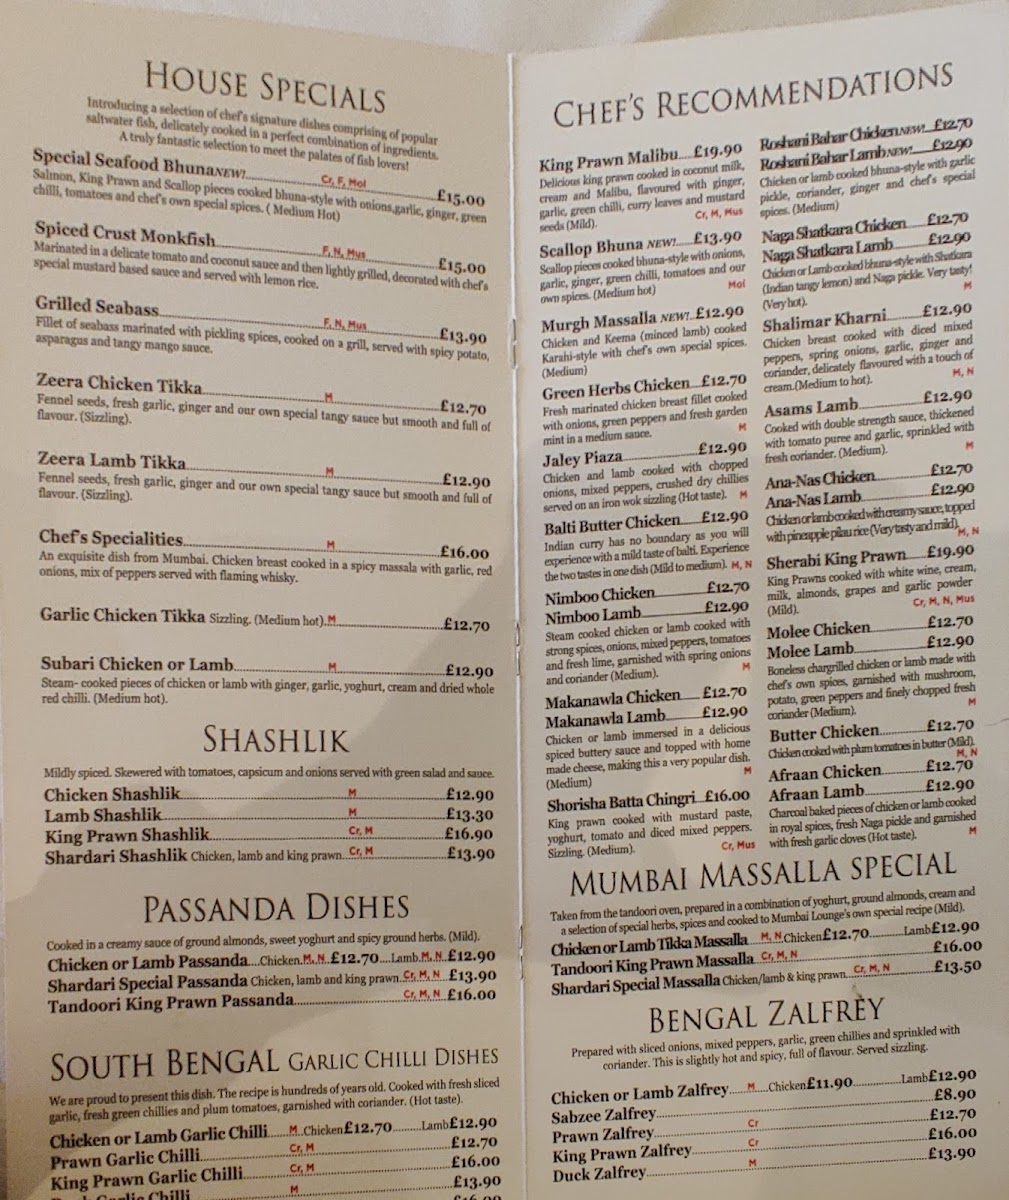 HOUSE SPECIALS
Introducing a selection of chef's signature dishes comprising of popular
saltwater fish, delicately cooked in a perfect combination of ingredients.
A truly fantastic selection to meet the palates of fish lovers!
Special Seafood Bhuna NEW! Cr, F, Mol £15.00
Salmon, King Prawn and Scallop pieces cooked bhuna-style with onions,garlic, ginger, green
chilli, tomatoes and chef's own special spices. ( Medium Hot)
Spiced Crust Monkfish F, N, Mus £15.00
Marinated in a delicate tomato and coconut sauce and then lightly grilled, decorated with chef's
special mustard based sauce and served with lemon rice.
Grilled Seabass F, N, Mus £13.90
Fillet of seabass marinated with pickling spices, cooked on a grill, served with spicy potato,
asparagus and tangy mango sauce.
Zeera Chicken Tikka M £12.70
Fennel seeds, fresh garlic, ginger and our own special tangy sauce but smooth and full of
flavour. (Sizzling).
Zeera Lamb Tikka M £12.90
Fennel seeds, fresh garlic, ginger and our own special tangy sauce but smooth and full of
flavour. (Sizzling).
Chef's Specialities M £16.00
An exquisite dish from Mumbai. Chicken breast cooked in a spicy massala with garlic, red
onions, mix of peppers served with flaming whisky.
Garlic Chicken Tikka Sizzling. (Medium hot). M £12.70
Subari Chicken or Lamb M £12.90
Steam- cooked pieces of chicken or lamb with ginger, garlic, yoghurt, cream and dried whole
red chilli. (Medium hot).
SHASHLIK
Mildly spiced. Skewered with tomatoes, capsicum and onions served with green salad and sauce.
Chicken Shashlik M £12.90
Lamb Shashlik M £13.30
King Prawn Shashlik Cr, M £16.90
Shardari Shashlik Chicken, lamb and king prawn Cr, M £13.90
PASSANDA DISHES
Cooked in a creamy sauce of ground almonds, sweet yoghurt and spicy ground herbs. (Mild).
Chicken or Lamb Passanda Chicken M, N £12.70 Lamb M, N £12.90
Shardari Special Passanda Chicken, lamb and king prawn Cr, M, N £13.90
Tandoori King Prawn Passanda Cr, M, N £16.00
SOUTH BENGAL GARLIC CHILLI DISHES
We are proud to present this dish. The recipe is hundreds of years old. Cooked with fresh sliced
garlic, fresh green chillies and plum tomatoes, garnished with coriander. (Hot taste).
Chicken or Lamb Garlic Chilli M Chicken £12.70 Lamb £12.90
Prawn Garlic Chilli Cr, M £12.70
King Prawn Garlic Chilli Cr, M £16.00
Garlic Chilli M £13.90
CHEF'S RECOMMENDATIONS
King Prawn Malibu £19.90
Delicious king prawn cooked in coconut milk,
cream and Malibu, flavoured with ginger,
garlic, green chilli, curry leaves and mustard
seeds (Mild). Cr, M, Mus
Scallop Bhuna NEW! £13.90
Scallop pieces cooked bhuna-style with onions,
garlic, ginger, green chilli, tomatoes and our
own spices. (Medium hot) Mol
Murgh Massalla NEW! £12.90
Chicken and Keema (minced lamb) cooked
Karahi-style with chef's own special spices.
(Medium)
Green Herbs Chicken £12.70
Fresh marinated chicken breast fillet cooked
with onions, green peppers and fresh garden
mint in a medium sauce. M
Jaley Piaza £12.90
Chicken and lamb cooked with chopped
onions, mixed peppers, crushed dry chillies
served on an iron wok sizzling (Hot taste). M
Balti Butter Chicken £12.90
Indian curry has no boundary as you will
experience with a mild taste of balti. Experience
the two tastes in one dish (Mild to medium). M, N
Nimboo Chicken £12.70
Nimboo Lamb £12.90
Steam cooked chicken or lamb cooked with
strong spices, onions, mixed peppers, tomatoes
and fresh lime, garnished with spring onions
and coriander (Medium). M
Makanawla Chicken £12.70
Makanawla Lamb £12.90
Chicken or lamb immersed in a delicious
spiced buttery sauce and topped with home
made cheese, making this a very popular dish.
(Medium) M
Shorisha Batta Chingri £16.00
King prawn cooked with mustard paste,
yoghurt, tomato and diced mixed peppers.
Sizzling. (Medium). Cr, Mus
Roshani Bahar Chicken NEW! £12.70
Roshani Bahar Lamb NEW! £12.90
Chicken or lamb cooked bhuna-style with garlic
pickle, coriander, ginger and chef's special
spices. (Medium)
Naga Shatkara Chicken £12.70
Naga Shatkara Lamb £12.90
Chicken or Lamb cooked bhuna-style with Shatkara
(Indian tangy lemon) and Naga pickle. Very tasty!
(Very hot). M
Shalimar Kharni £12.90
Chicken breast cooked with diced mixed
peppers, spring onions, garlic, ginger and
coriander, delicately flavoured with a touch of
cream.(Medium to hot). M, N
Asams Lamb £12.90
Cooked with double strength sauce, thickened
with tomato puree and garlic, sprinkled with
fresh coriander. (Medium). M
Ana-Nas Chicken £12.70
Ana-Nas Lamb £12.90
Chicken or lamb cooked with creamy sauce, topped
with pineapple pilau rice (Very tasty and mild). M, N
Sherabi King Prawn £19.90
King Prawns cooked with white wine, cream,
milk, almonds, grapes and garlic powder
(Mild). Cr, M, N, Mus
Molee Chicken £12.70
Molee Lamb £12.90
Boneless chargrilled chicken or lamb made with
chef's own spices, garnished with mushroom,
potato, green peppers and finely chopped fresh
coriander (Medium). M
Butter Chicken £12.70
Chicken cooked with plum tomatoes in butter (Mild).
M, N
Afraan Chicken £12.70
Afraan Lamb £12.90
Charcoal baked pieces of chicken or lamb cooked
in royal spices, fresh Naga pickle and garnished
with fresh garlic cloves (Hot taste). M
MUMBAI MASSALLA SPECIAL
Taken from the tandoori oven, prepared in a combination of yoghurt, ground almonds, cream and
a selection of special herbs, spices and cooked to Mumbai Lounge's own special recipe (Mild).
Chicken or Lamb Tikka Massalla M, N Chicken £12.70 Lamb £12.90
Tandoori King Prawn Massalla Cr, M, N £16.00
Shardari Special Massalla Chicken/lamb & king prawn Cr, M, N £13.50
BENGAL ZALFREY
Prepared with sliced onions, mixed peppers, garlic, green chillies and sprinkled with
coriander. This is slightly hot and spicy, full of flavour. Served sizzling.
Chicken or Lamb Zalfrey M Chicken £11.90 Lamb £12.90
Sabzee Zalfrey £8.90
Prawn Zalfrey Cr £12.70
King Prawn Zalfrey Cr £16.00
Duck Zalfrey M £13.90